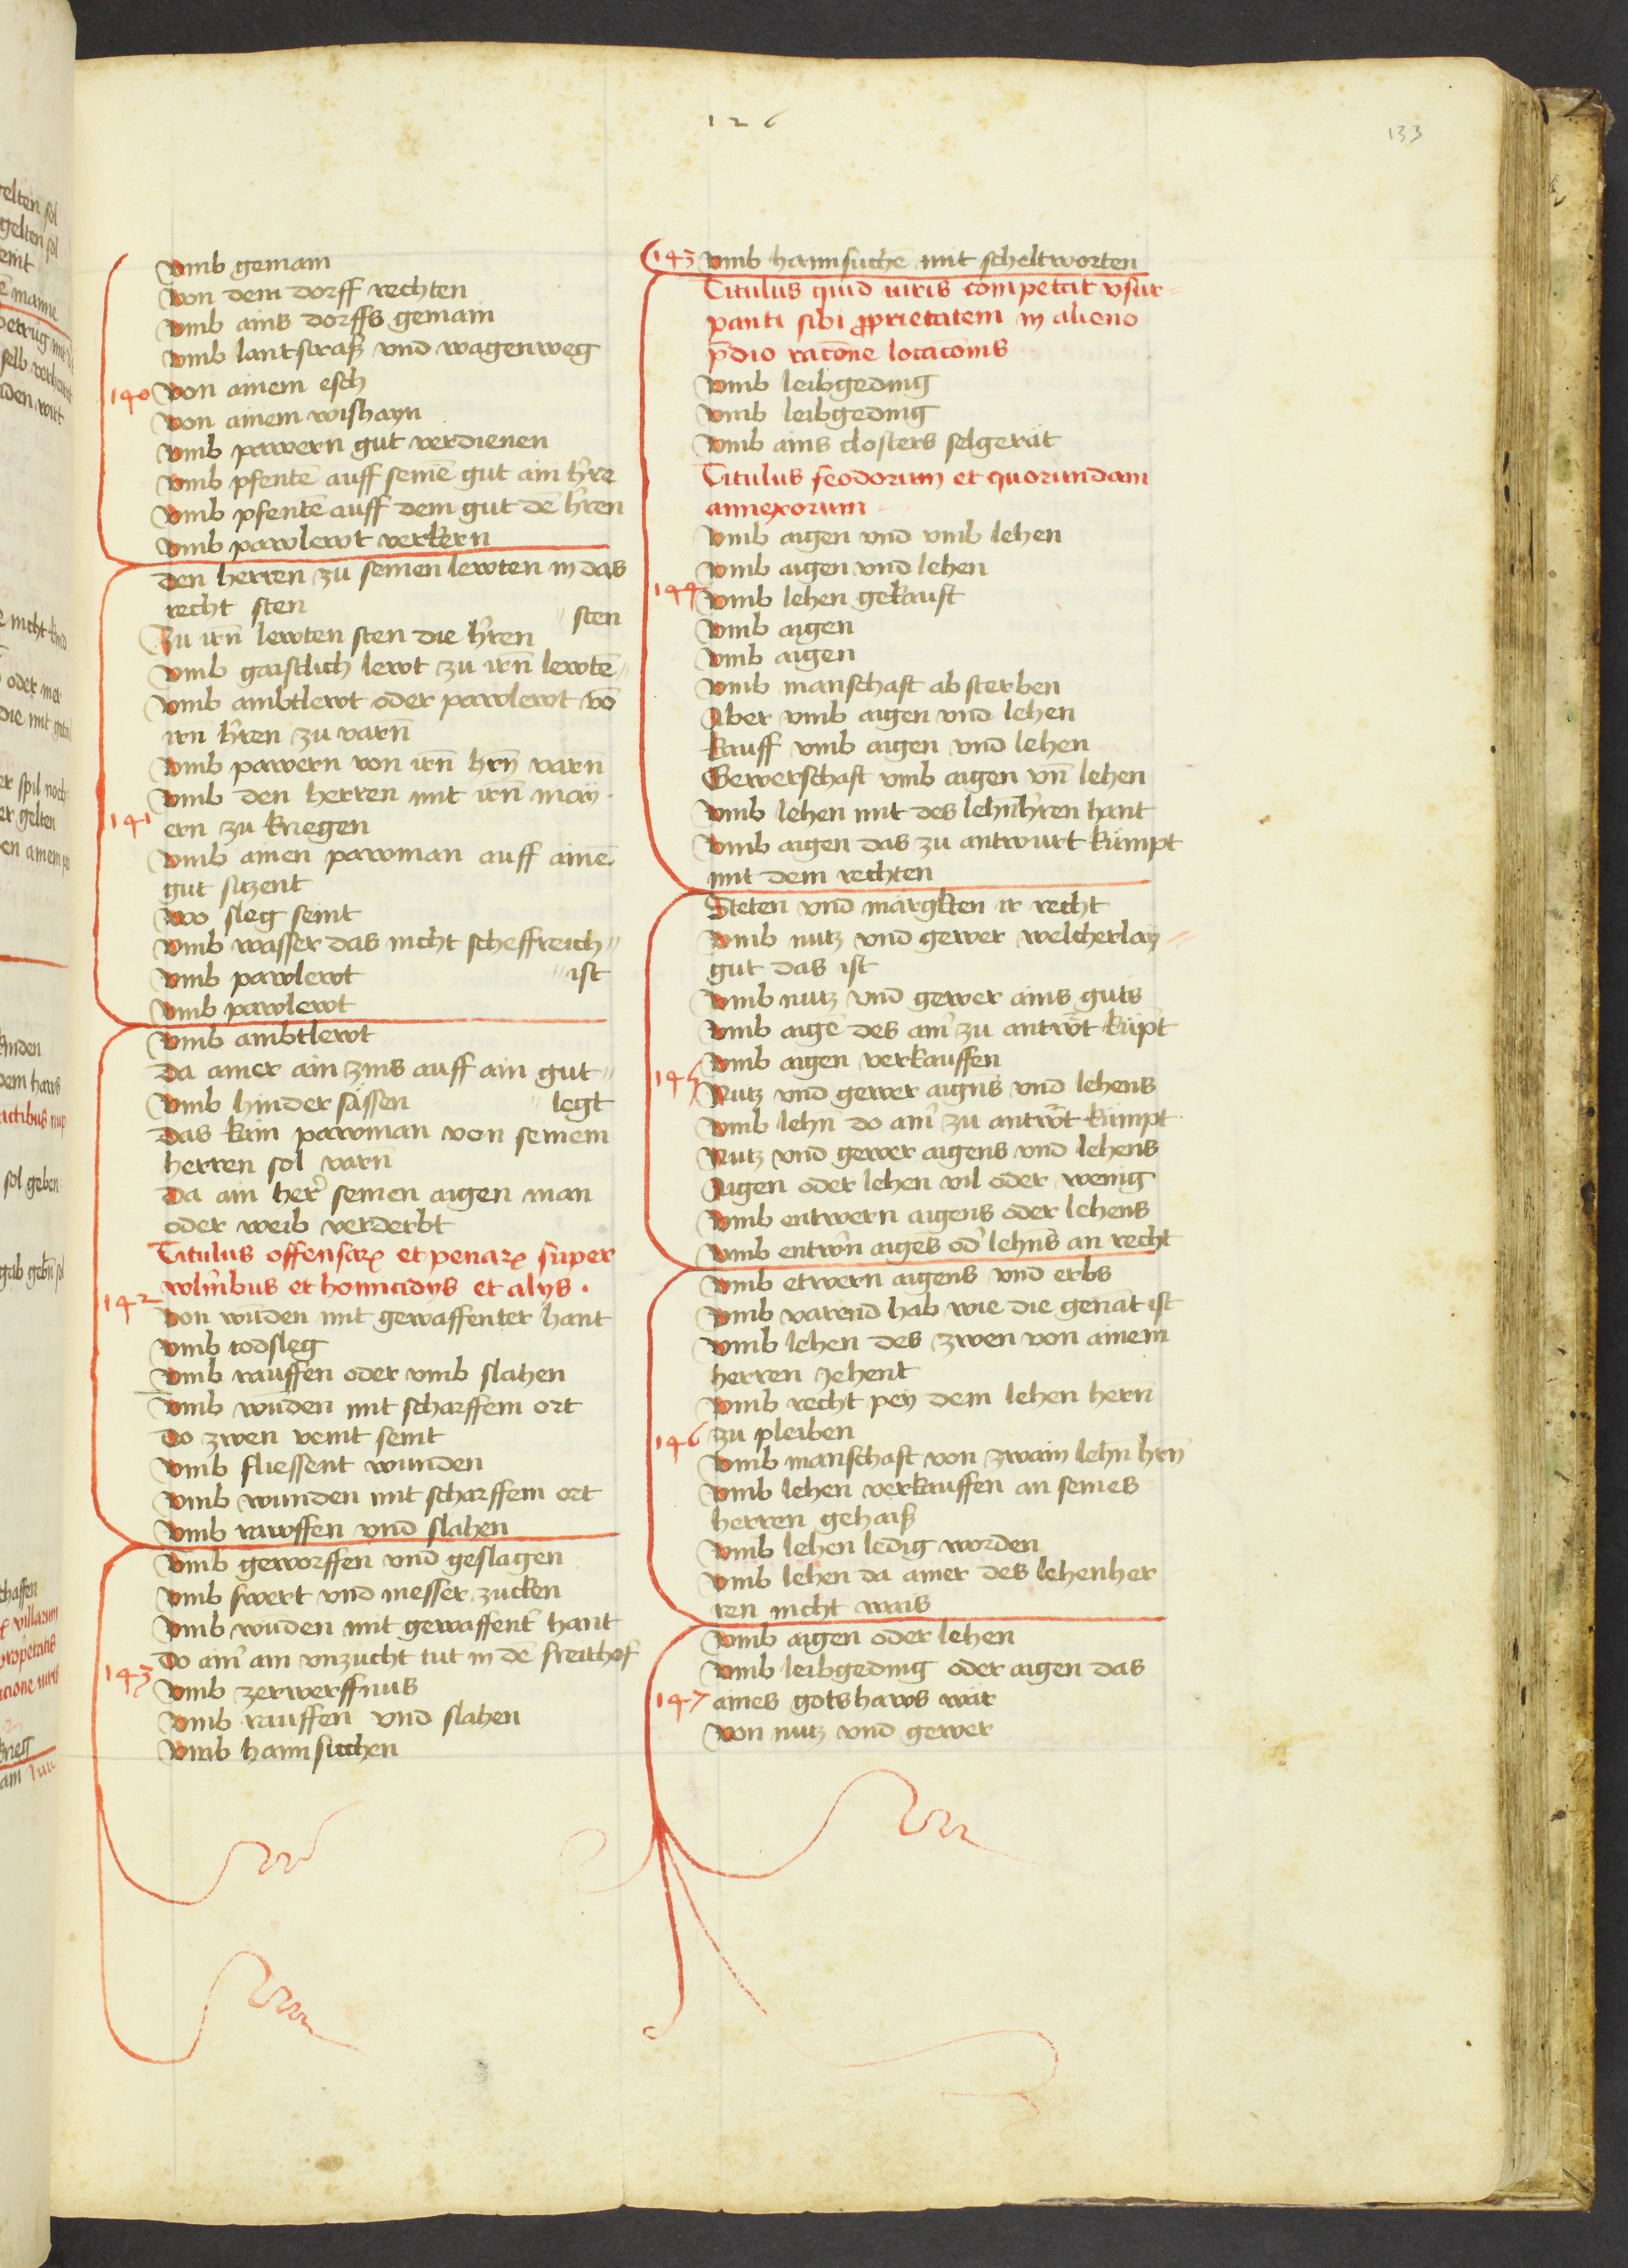 126
133
vmb gemain
von dem dorff rechten
vmb ains dorffs gemain
vmb lantstraß vnd wagenweg
140 von ainem esch
von ainem wishayn
vmb pawern gut verdienen
vmb pfentē auff seinē gut ain h're
vmb pfentē auff dem gut dē h'ren
vmb pawlewt verkern
den herren zu seinen lewten in das
recht sten
Zu irn̄ lewten sten die h'ren
vmb gaistlich lewt zu irn̄ lewtē // sten
vmb ambtlewt oder pawlewt vō
irn h'ren zu varn̄
vmb pawern von irn̄ hrn̄ varn
vmb den herren mit irn̄ may
141 ern zu kriegen
vmb ainen pawman auff ainē
gut siczent
wo sleg seint
vmb wasser das nicht scheffreich //
vmb pawlewt // ist
vmb pawlewt
vmb ambtlewt
da ainer ain zins auff ain gut //
vmb hinder sässen // legt
das kain pawman von seinem
herren sol varn
da ain her' seinen aigen man
oder weib verderbt
Titulus offensaꝝ et penaꝝ super
wln'ibus et homicidijs et alijs .
142 von wūden mit gewaffenter hant
vmb todsleg
vmb rauffen oder vmb slahen
vmb wūden mit scharffem ort
do zwen veint seint
vmb fliessent wunden
vmb wunden mit scharffem ort
vmb rawffen vnd slahen
vmb geworffen vnd geslagen
vmb swert vnd messer zucken
vmb wūden mit gewaffent' hant
do ain' ain vnzucht tut in dē freithof
143 vmb zerwerffnus
vmb rauffen vnd slahen
vmb haimsuchen
143 vmb haimsuchē mit scheltworten
Titulus quid iuris competat vsur=
panti sibi ꝓprietatem in alieno
p̄dio rac̄one locac̄onis
vmb leibgeding
vmb leibgeding
vmb ains closters selgerät
Titulus feodorum et quorundam
annexorum
vmb aigen vnd vmb lehen
vmb aigen vnd lehen
144 vmb lehen gekauft
vmb aigen
vmb aigen
vmb manschaft absterben
Aber vmb aigen vnd lehen
kauff vmb aigen vnd lehen
Gewerschaft vmb aigen vn̄ lehen
vmb lehen mit des lehnh'ren hant
vmb aigen das zu antwurt kümpt
mit dem rechten
Steten vnd märgkten ir recht
vmb nutz vnd gewer welcherlay =
gut das ist
vmb nutz vnd gewer ains guts
vmb aigē des ain' zu antw'rt küpt
vmb aigen verkauffen
145 Nutz vnd gewer aigns vnd lehens
vmb lehn do ain' zu antw'rt kümpt
Nutz vnd gewer aigens vnd lehens
Aigen oder lehen vil oder wenig
vmb entwern aigens oder lehens
vmb entw'n aigēs od' lehn̄s an recht
vmb etwern aigens vnd erbs
vmb varend hab wie die genāt ist
vmb lehen des zwen von ainem
herren Jehent
vmb recht pey dem lehen hern
146 zu pleiben
vmb manschaft von zwain lehn hrn̄
vmb lehen verkauffen an seines
herren gehaiß
vmb lehen ledig worden
vmb lehen da ainer des lehenher
ren nicht wais
vmb aigen oder lehen
vmb leibgeding oder aigen das
147 aines gotshaws wär
von nutz vnd gewer